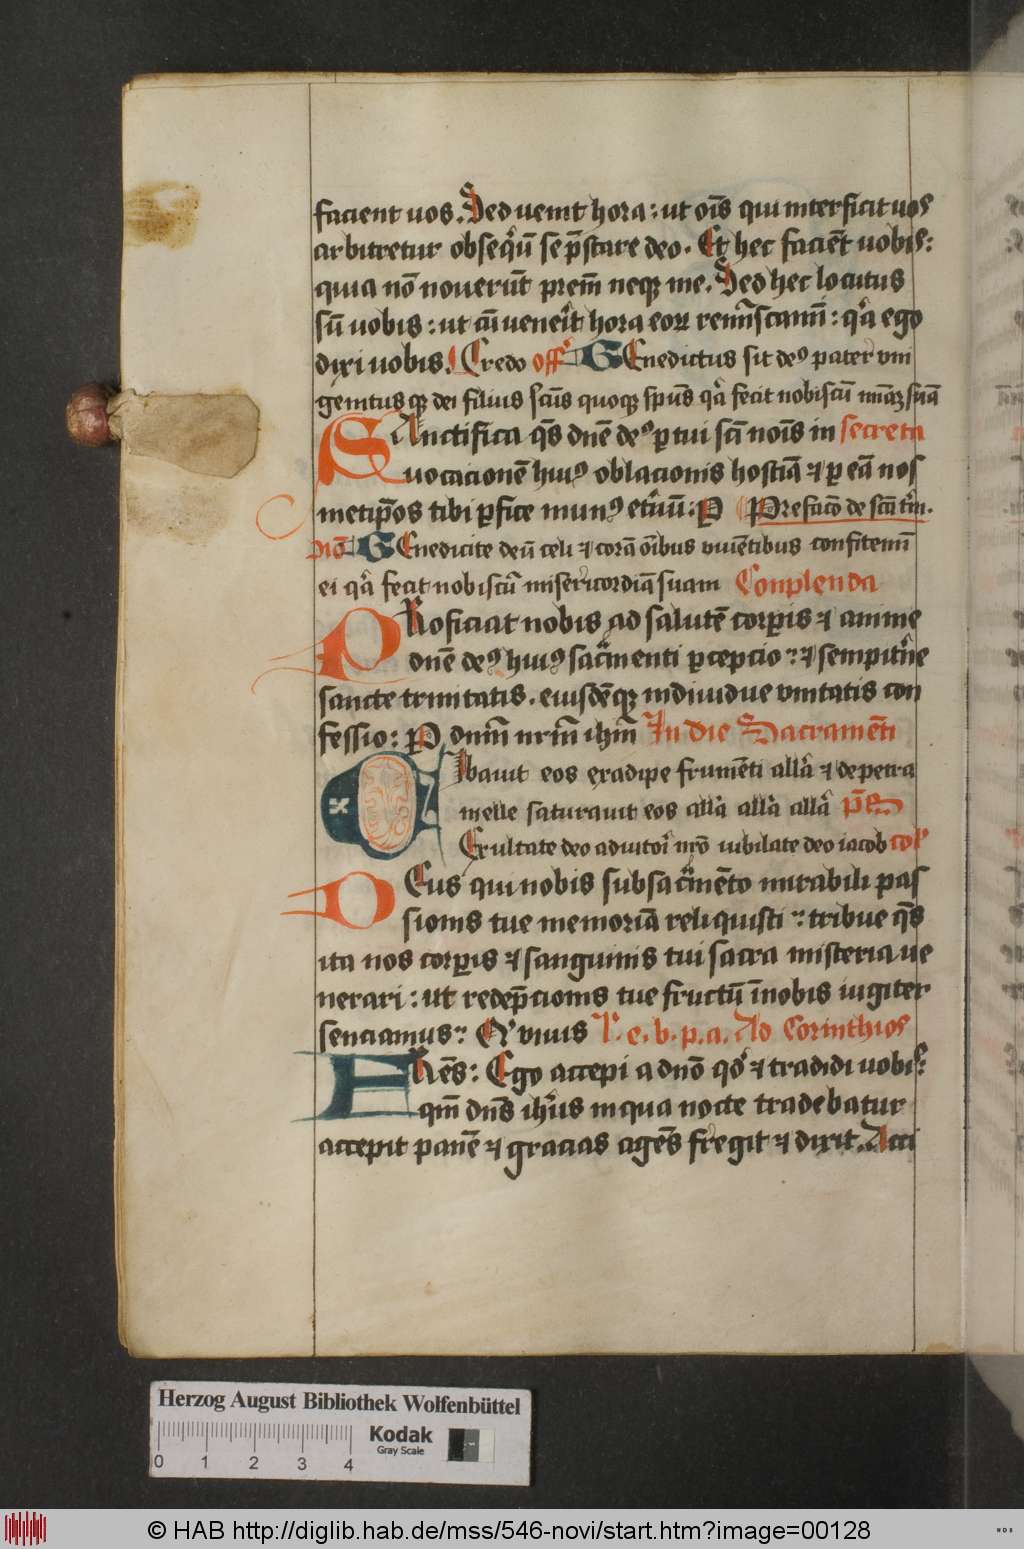 facient uos. Sed uenit hora: ut oīs qui interficit uos
arbitretur obseqū se p̄stare deo. Et hec faciēt uobis:
quia nō nouerūt prem̄ neqꝫ me. Sed hec locutus
sū uobis: ut cū ueneīt hora eoꝝ remīscamī: qͣ ego
dixi uobis. Credo off̄ BEnedictus sit deꝰ pater vni
genitus qꝫ dei filius scūs quoqꝫ spūs qͣ fecit nobiscū suā
SAnctifica qs̄ dnē deꝰ ꝑ tui sc̄i noīs in secreta
uocacionē huiꝰ oblacionis hostiā ⁊ ꝑ eā nos
metip̄os tibi ꝑfice munꝰ et̄nū: P Prefacō de scā tri.
BEnedicite deū celi ⁊ corā oībus viuentibus confitemī
ei qͣ fecit nobiscū misericordiā suam Conplenda
PRoficiat nobis ad salutē corꝑis ⁊ anime
dnē deꝰ huiꝰ sacͣmenti ꝑcepcio: ⁊ sempit̄ne
sancte trinitatis. eiusdēqꝫ indiuidue vnitatis con
fessio: P dnm̄ nrm̄ ihm̄ In die Sacramēti
CIbauit eos ex adipe frumēti allā ⁊ de petra
melle saturauit eos allā allā allā p̄s
Exultate deo adiutoī nrō iubilate deo iacob col
DEus qui nobis sub sacͣmēto mirabili pas
sionis tue memoriā reliquisti: tribue qs̄
ita nos corꝑis ⁊ sanguinis tui sacra misteria ue
nerari: ut redēp̄cionis tue fructū īnobis iugiter
senciamus: Qͥ viuis L. e. b. p. a. Ad Corinthios
FRēs: Ego accepi a dnō qd̄ ⁊ tradidi uobis:
qm̄ dn̄s ihūs in qua nocte tradebatur
accepit panē ⁊ gracias agēs fregit ⁊ dixit. Acci
Herzog August Bibliothek Wolfenbüttel
0 1 2 3 4
Kodak
Gray Scale
© HAB http://diglib.hab.de/mss/546-novi/start.htm?image=00128